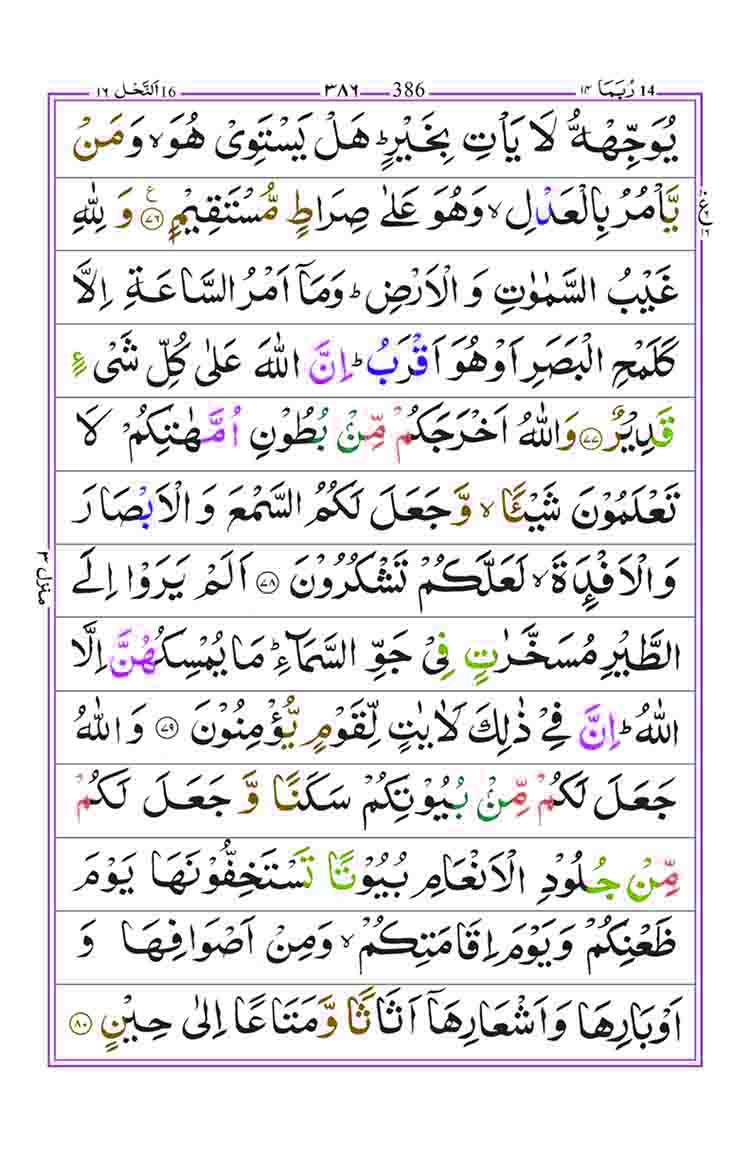 14 رُبَمَا ١٤ 386 ٣٨٦ 16 اَلنَّحۡل ١٦
يُوَجِّهْهُّ لَا يَاۡتِ بِخَيۡرٍ ؕ هَلۡ يَسۡتَوِىۡ هُوَ ۙ وَمَنۡ
يَّاۡمُرُ بِالۡعَدۡلِ ۙ وَهُوَ عَلٰى صِرَاطٍ مُّسۡتَقِيۡمٍ ﴿۷۶﴾ ع وَ لِلّٰهِ
ع ١٦
غَيۡبُ السَّمٰوٰتِ وَ الۡاَرۡضِ ؕ وَمَاۤ اَمۡرُ السَّاعَةِ اِلَّا
كَلَمۡحِ الۡبَصَرِ اَوۡ هُوَ اَقۡرَبُ ؕ اِنَّ اللّٰهَ عَلٰى كُلِّ شَىۡءٍ
قَدِيۡرٌ ﴿۷۷﴾ وَاللّٰهُ اَخۡرَجَكُمۡ مِّنۡۢ بُطُوۡنِ اُمَّهٰتِكُمۡ لَا
تَعۡلَمُوۡنَ شَيۡـًٔا ۙ وَّ جَعَلَ لَكُمُ السَّمۡعَ وَ الۡاَبۡصَارَ
وَالۡاَفۡـِٕدَةَ ۙ لَعَلَّكُمۡ تَشۡكُرُوۡنَ ﴿۷۸﴾ اَلَمۡ يَرَوۡا اِلَى
منزل ٣
الطَّيۡرِ مُسَخَّرٰتٍ فِىۡ جَوِّ السَّمَآءِ ؕ مَا يُمۡسِكُهُنَّ اِلَّا
اللّٰهُ ؕ اِنَّ فِىۡ ذٰلِكَ لَاٰيٰتٍ لِّقَوۡمٍ يُّؤۡمِنُوۡنَ ﴿۷۹﴾ وَاللّٰهُ
جَعَلَ لَكُمۡ مِّنۡۢ بُيُوۡتِكُمۡ سَكَنًا وَّ جَعَلَ لَكُمۡ
مِّنۡ جُلُوۡدِ الۡاَنۡعَامِ بُيُوۡتًا تَسۡتَخِفُّوۡنَهَا يَوۡمَ
ظَعۡنِكُمۡ وَ يَوۡمَ اِقَامَتِكُمۡ ۙ وَمِنۡ اَصۡوَافِهَا وَ
اَوۡبَارِهَا وَ اَشۡعَارِهَاۤ اَثَاثًا وَّ مَتَاعًا اِلٰى حِيۡنٍ ﴿۸۰﴾